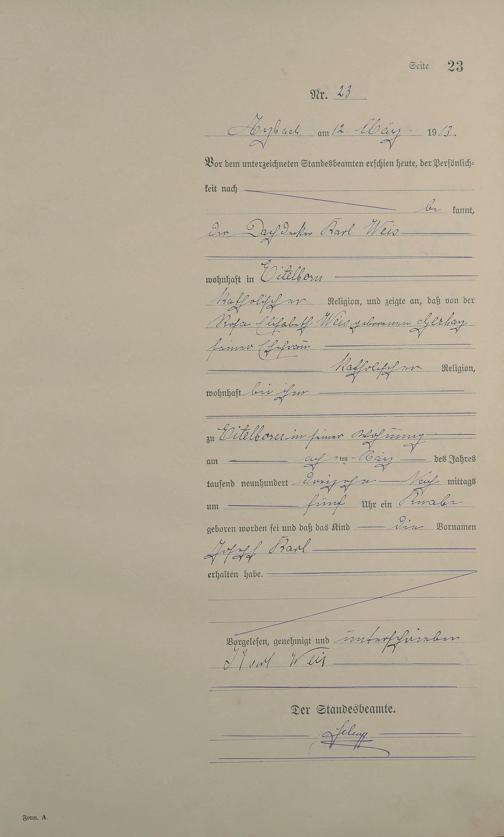 Seite 23
Nr. 23
Arzbach am 12 März 1913.
Vor dem unterzeichneten Standesbeamten erschien heute, der Persönlich-
keit nach
be kannt,
der Dachdecker Karl Weis
wohnhaft in Eitelborn
katholischer Religion, und zeigte an, daß von der
Rosa Elisabeth Weis geborenen
seiner Ehefrau
katholischer Religion,
wohnhaft bei ihm
zu Eitelborn in seiner Wohnung
am ten März des Jahres
tausend neunhundert dreizehn Nach mittags
um fünf Uhr ein Knabe
geboren worden sei und daß das Kind die Vornamen
Josef Karl
erhalten habe.
Vorgelesen, genehmigt und unterschrieben
Karl Weis
Der Standesbeamte.
Form. A.